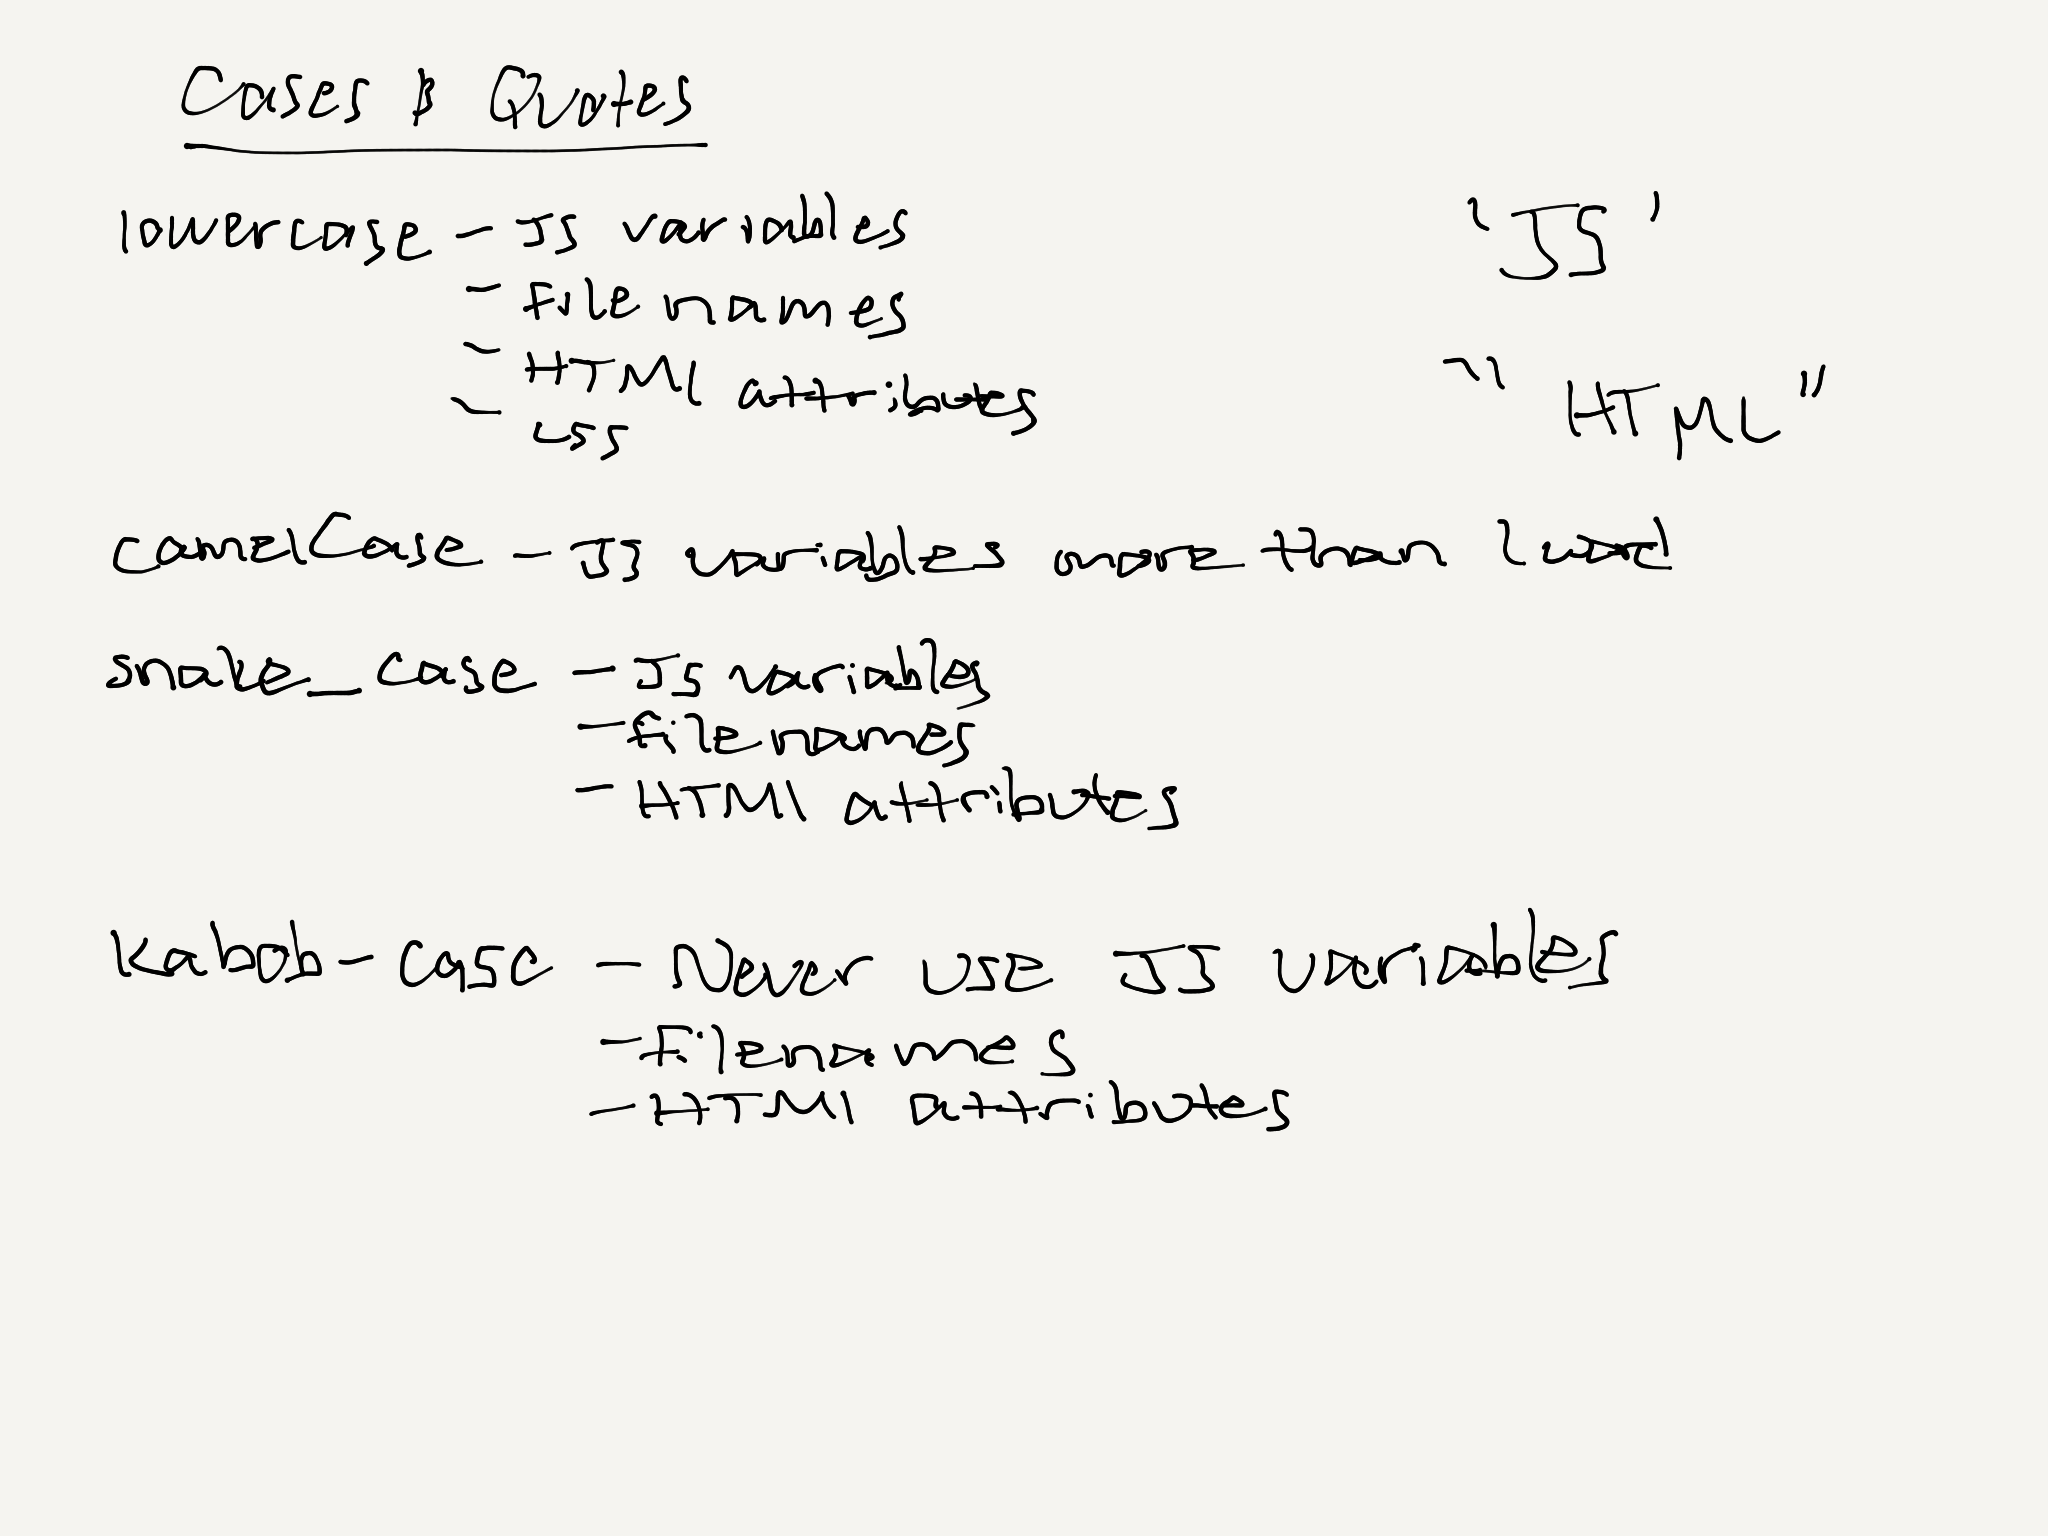 Cases & Quotes
lowercase - JS variables
- File names
- HTMl attributes
- css
'JS'
"HTML"
camelCase - JS variables more than 1 word
snake_case - JS variables
- filenames
- HTMl attributes
kabob-case - Never use JS variables
- Filenames
- HTMl attributes